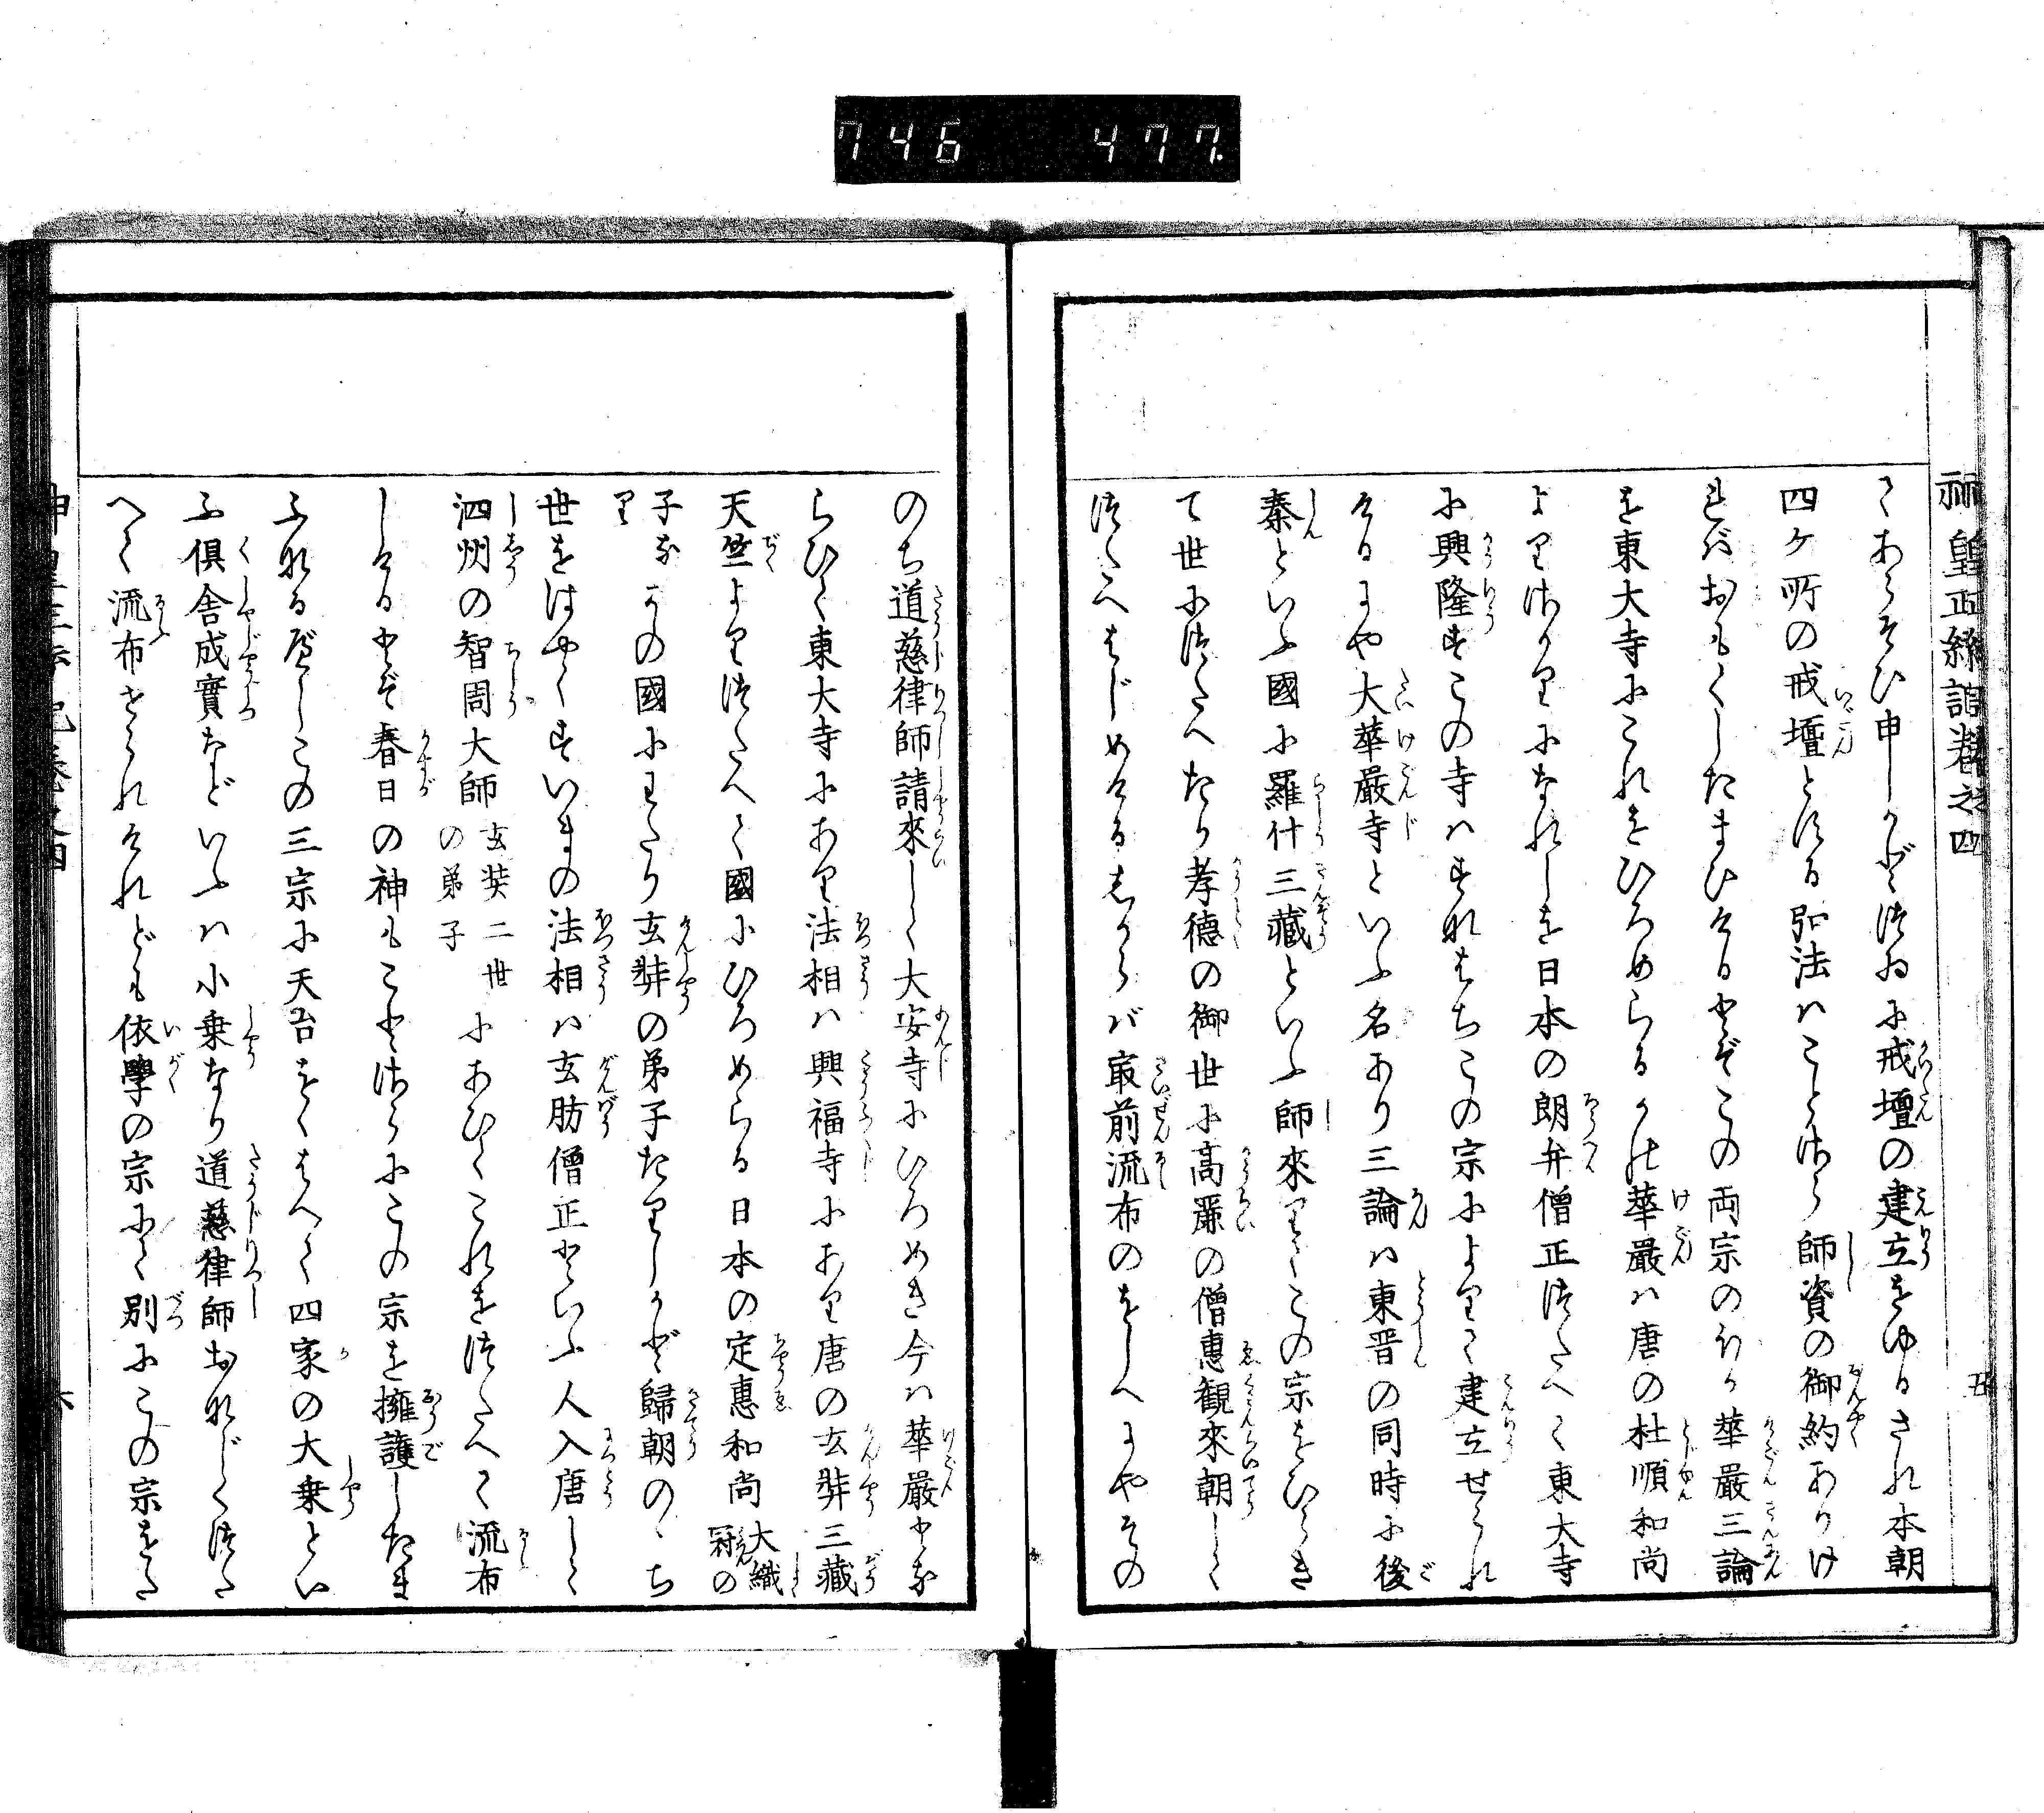 746 477.
神皇正統記巻之四
五
てあらそひ申しかど終ゐに戒壇の建立をゆるされ本朝
四ケ所の戒壇となる弘法はことさら師資の御約ありけ
ればおもくしたまひけるとぞこの両宗のほか華嚴三論
を東大寺にこれをひろめらるかの華嚴は唐の杜順和尚
よりさかりになれしを日本の朗弁僧正つたへて東大寺
に興隆すこの寺はすなはちこの宗によりて建立せられ
けるにや大華嚴寺といふ名あり三論は東晋の同時に後
秦といふ國に羅什三藏といふ師來りてこの宗をひらき
て世につたへたり孝德の御世に高麗の僧惠観來朝して
つたへはじめけるしからば最前流布のをしへにやその
のち道慈律師請來して大安寺にひろめき今は華嚴とな
らびて東大寺にあり法相は興福寺にあり唐の玄奘三藏
天竺よりつたへて國にひろめらる日本の定惠和尚大織冠の
子なりかの國にわたり玄奘の弟子たりしかど歸朝のゝち
世をはやくすいまの法相は玄肪僧正といふ人入唐して
泗州の智周大師玄奘二世の弟子にあひてこれをつたへて流布
しけるとぞ春日の神もことさらにこの宗を擁護したま
ふなるべしこの三宗に天台をくはへて四家の大乗とい
ふ倶舎成實などいふは小乗なり道慈律師おなじくつた
へて流布せられけれども依學の宗にて別にこの宗をた
神皇正統記巻之四
六